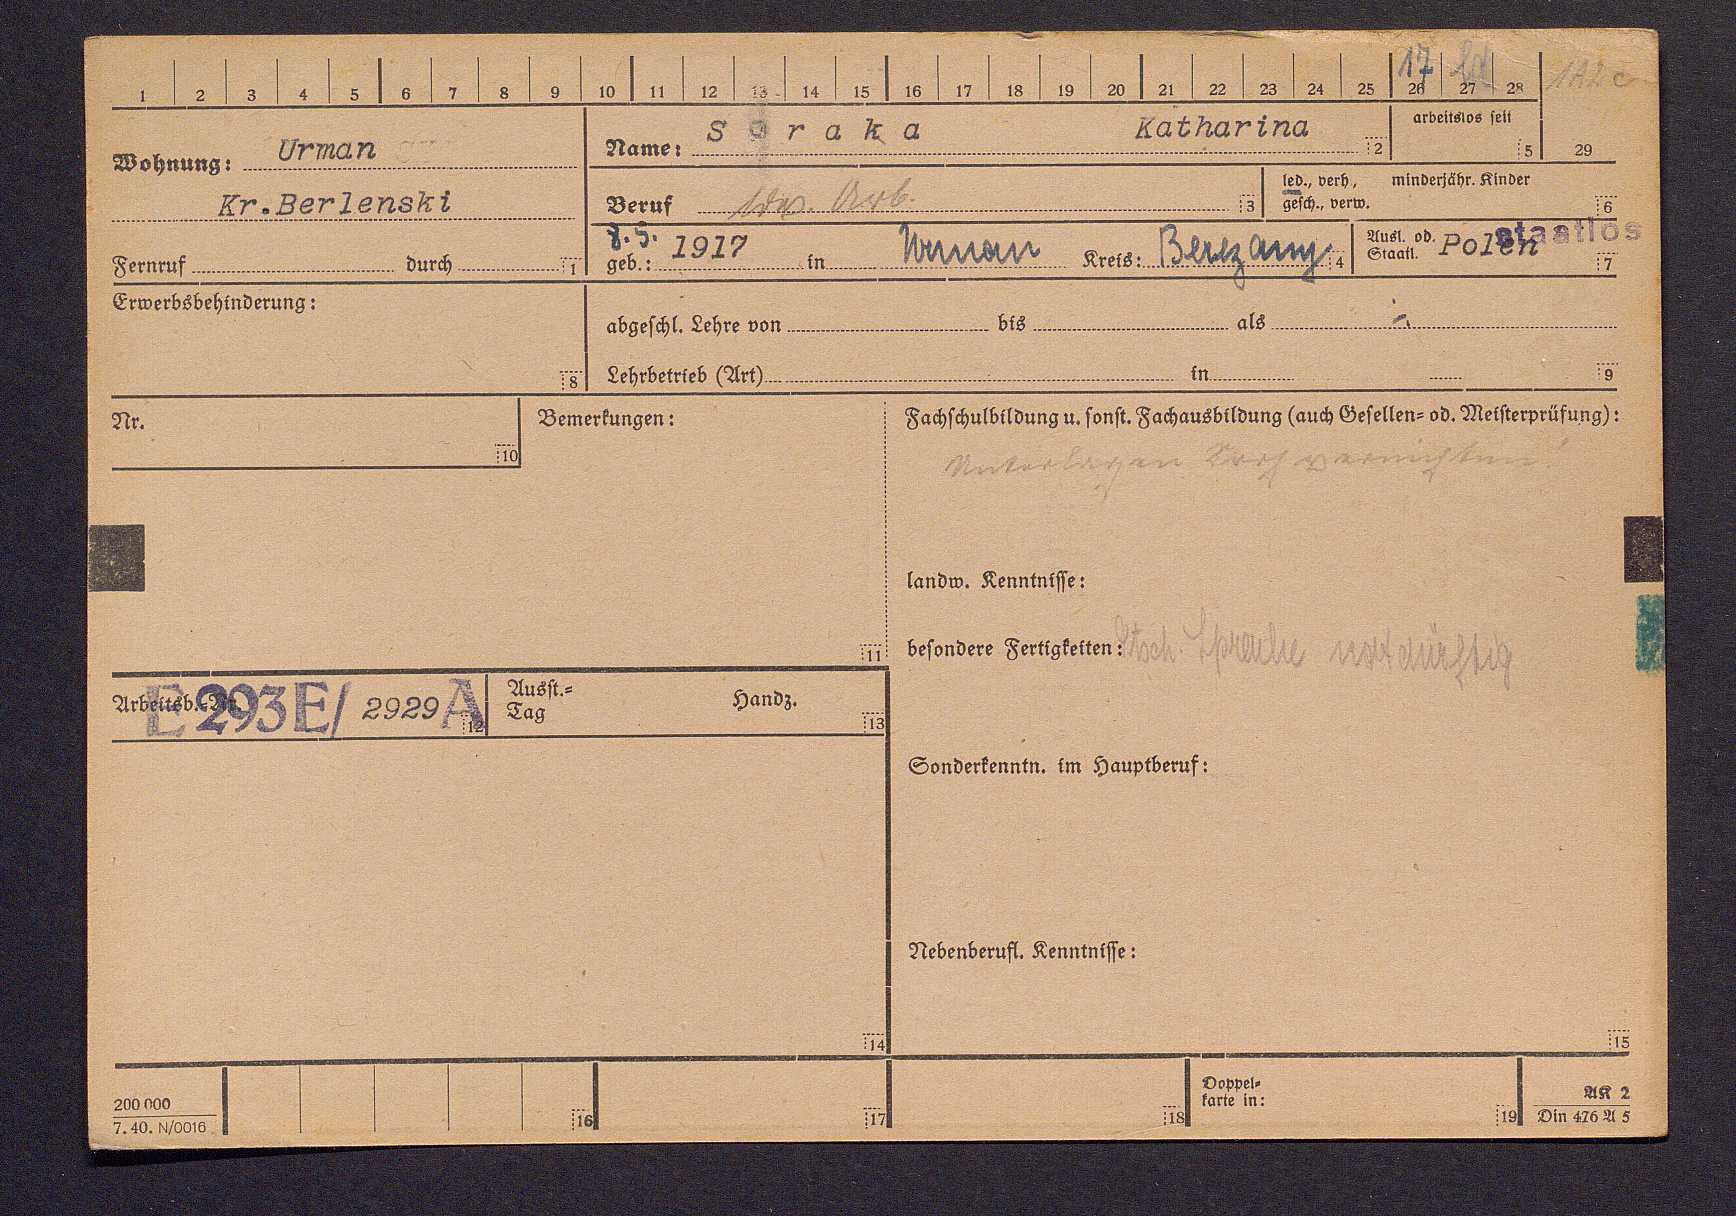 1 2 3 4 5 6 7 8 9 10 11 12 13 14 15 16 17 18 19 20 21 22 23 24 25 26 27 28
17
122 c
Wohnung: Urman
Kr.Berlenski
Fernruf durch 1
Name: S o r a k a Katharina 2
arbeitslos seit 5
29
Beruf Arb. 3
led., verh., minderjähr. Kinder
gesch., verw. 6
8.5.
geb.: 1917 in Urman Kreis: Berezany 4
Ausl. od. Staatl. Polen staatlos 7
Erwerbsbehinderung: 8
abgeschl. Lehre von bis als
Lehrbetrieb (Art) in 9
Nr. 10
Bemerkungen: 11
Fachschulbildung u. sonst. Fachausbildung (auch Gesellen- od. Meisterprüfung):
Unterlagen vernichten!
landw. Kenntnisse:
besondere Fertigkeiten: dtsch. Sprache notdürftig
Arbeitsb.-Nr. E 293 E/ 2929 A 12
Ausst.-
Tag Handz. 13
Sonderkenntn. im Hauptberuf:
Nebenberufl. Kenntnisse:
14
15
200 000
7. 40. N/0016
16
17
18
Doppel-
karte in: 19
AK 2
Din 476 A 5